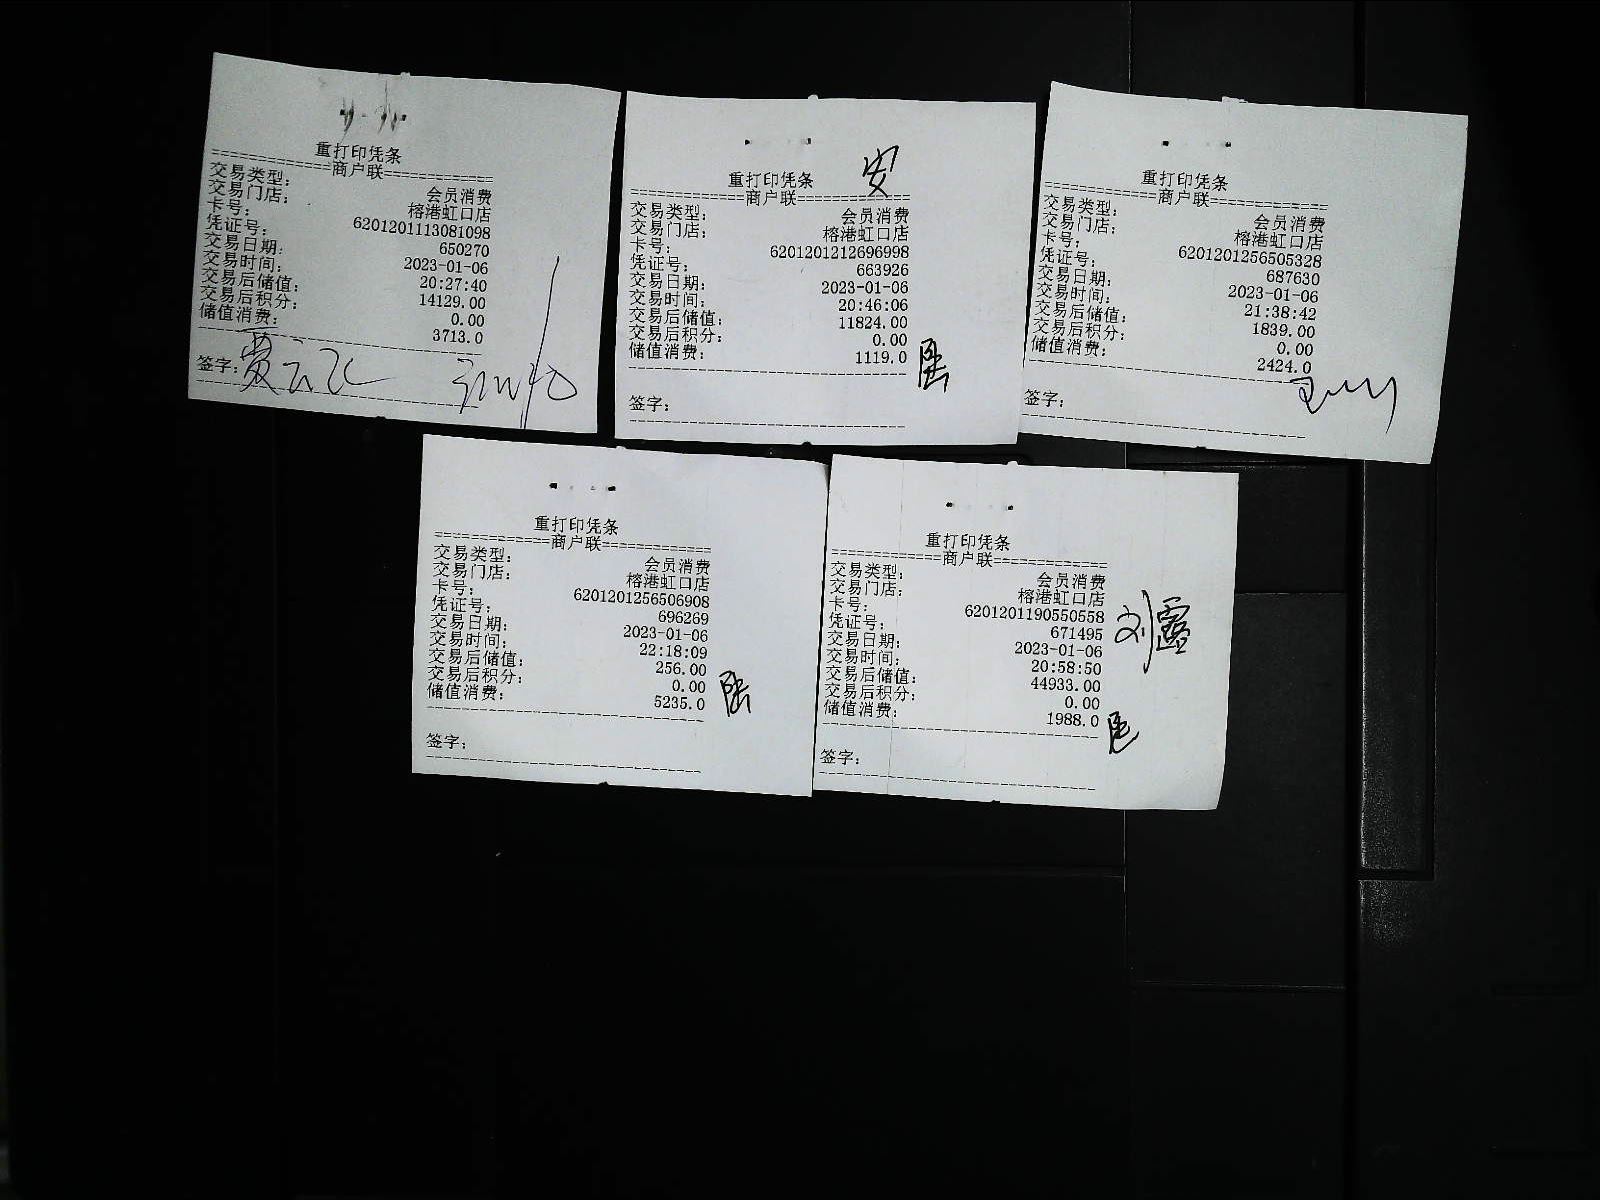 重打印凭条
=============商户联============
交易类型： 会员消费
交易门店： 榕港虹口店
卡号： 6201201113081098
凭证号： 650270
交易日期： 2023-01-06
交易时间： 20:27:40
交易后储值： 14129.00
交易后积分： 0.00
储值消费： 3713.0
签字：
安
重打印凭条
=============商户联============
交易类型： 会员消费
交易门店： 榕港虹口店
卡号： 6201201212696998
凭证号： 663926
交易日期： 2023-01-06
交易时间： 20:46:06
交易后储值： 11824.00
交易后积分： 0.00
储值消费： 1119.0
签字：
重打印凭条
=============商户联============
交易类型： 会员消费
交易门店： 榕港虹口店
卡号： 6201201256505328
凭证号： 687630
交易日期： 2023-01-06
交易时间： 21:38:42
交易后储值： 1839.00
交易后积分： 0.00
储值消费： 2424.0
签字：
重打印凭条
=============商户联============
交易类型： 会员消费
交易门店： 榕港虹口店
卡号： 6201201256506908
凭证号： 696269
交易日期： 2023-01-06
交易时间： 22:18:09
交易后储值： 256.00
交易后积分： 0.00
储值消费： 5235.0
签字：
重打印凭条
=============商户联============
交易类型： 会员消费
交易门店： 榕港虹口店
卡号： 6201201190550558
凭证号： 671495
交易日期： 2023-01-06
交易时间： 20:58:50
交易后储值： 44933.00
交易后积分： 0.00
储值消费： 1988.0
刘露
签字：